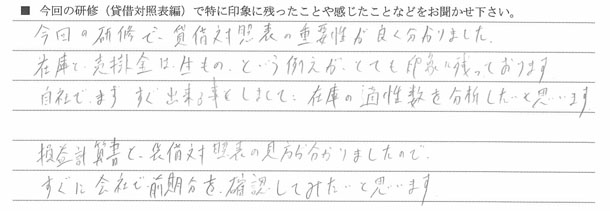 ■ 今回の研修（貸借対照表編）で特に印象に残ったことや感じたことなどをお聞かせ下さい。
今回の研修で、貸借対照表の重要性が良く分かりました。
在庫と、売掛金は、生もの、という例えが、とても印象に残っております
自社で、まず すぐ出来る事としまして、在庫の適性数を分析したいと思います
損益計算書と、貸借対照表の見方が分かりましたので、
すぐに会社で前期分を、確認してみたいと思います